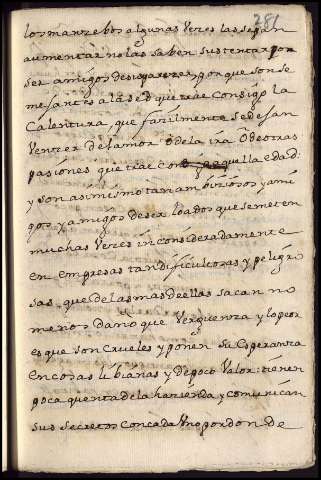 281
los manzebos algunas Vezes las sepan
aumentar no las saben sustentar por
ser amigos de si
que son se
mejantes a la sed que trae Consigo la
Calentura, que fazilmente se desan
Venzer del amor o de la ira o de otras
pasiones que trae con aquella edad:
y son asimismo tan ambiziosos y ami
gos de ser loados que se meten
muchas Vezes inconsideradamente
en empresas tan dificultosas y peligro
sas, que de las mas de ellas sacan no
menor daño que Verguenza y lo peor
es que son crueles y ponen su esperanza
en cosas libianas y de poco Valor: tienen
poca quenta de la hazienda y comunican
sus secretos con cada Uno por don de